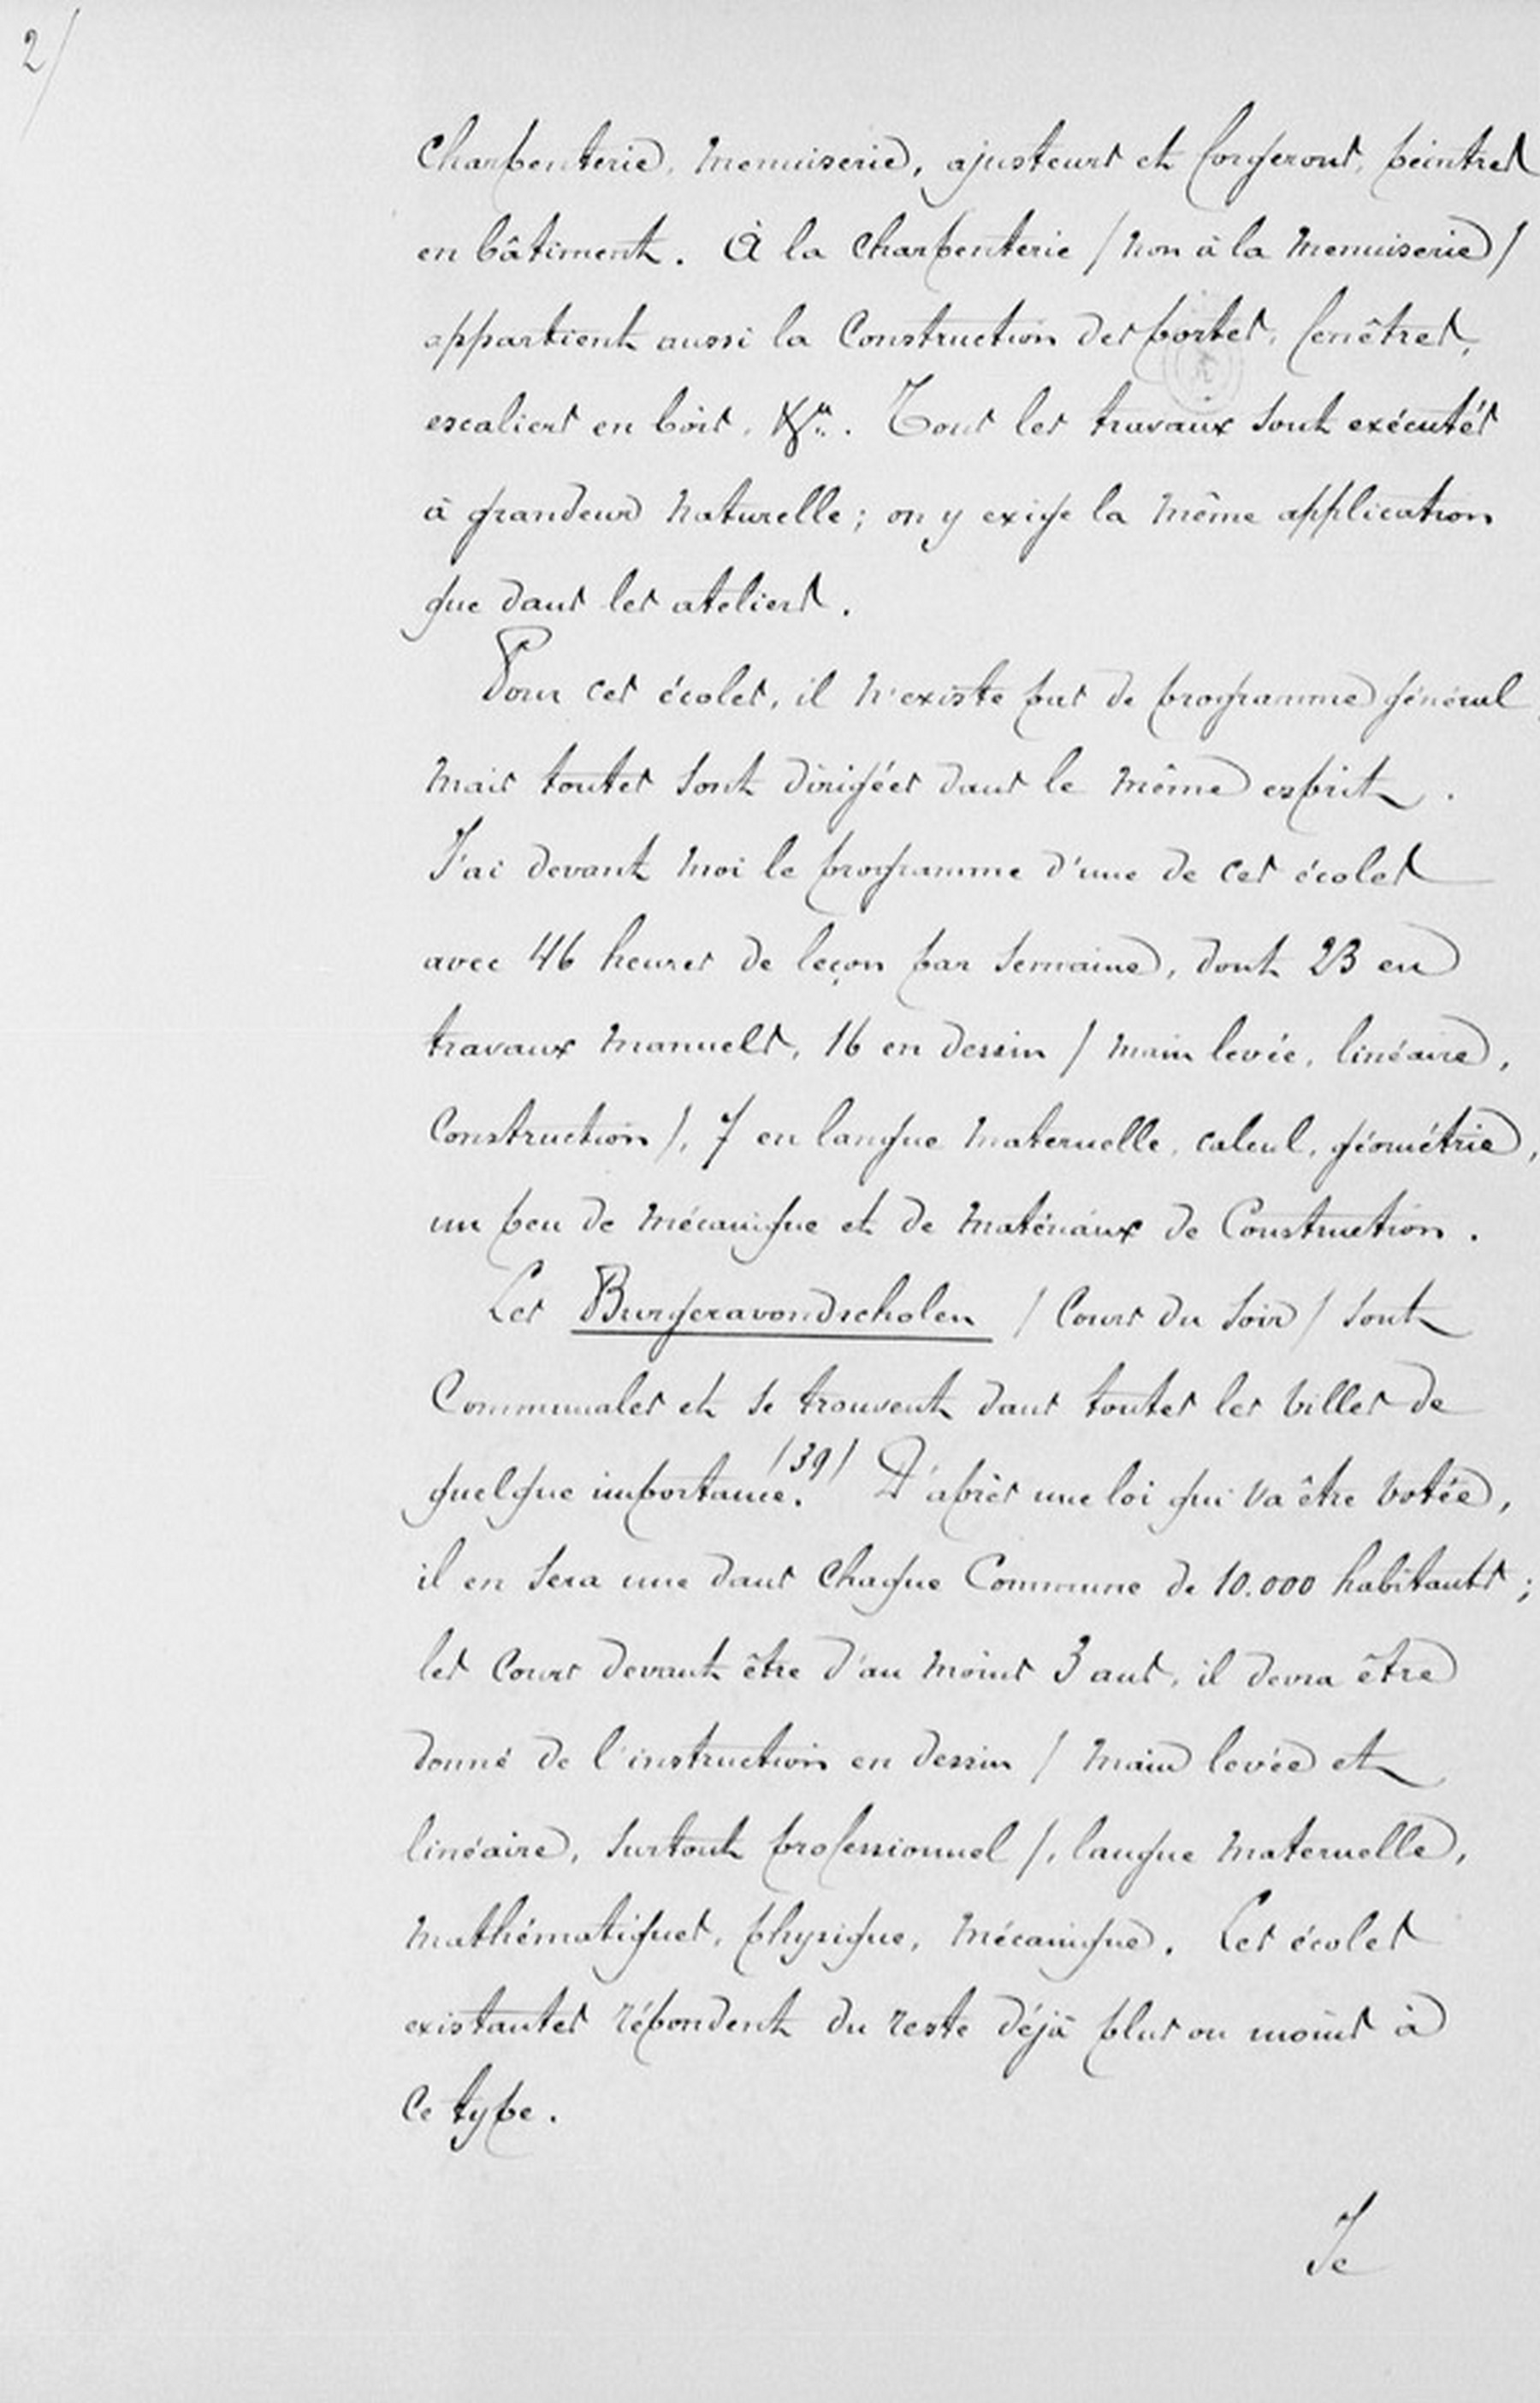 2/
Charpenterie, menuiserie, ajusteurs et forgerons, peintres
en bâtiment. À la charpenterie / non à la menuiserie /
appartient aussi la construction des portes, fenêtres,
escaliers en bois, &a. Tous les travaux sont exécutés
à grandeur naturelle; on y exige la même application
que dans les ateliers.
Pour ces écoles, il n'existe pas de programme général
mais toutes sont dirigées dans le même esprit.
J'ai devant moi le programme d'une de ces écoles
avec 46 heures de leçon par semaine, dont 23 en
travaux manuels, 16 en dessin / main levée, linéaire,
construction /, 7 en langue maternelle, calcul, géométrie,
un peu de mécanique et de matériaux de Construction.
Les Burgeravondscholen / Cours du Soir / sont
Communales et se trouvent dans toutes les villes de
quelque importance. /39/ D'après une loi qui va être votée,
il en sera une dans chaque Commune de 10.000 habitants;
les cours devant être d'au moins 3 ans, il devra être
donné de l'instruction en dessin / main levée et
linéaire, surtout professionnel /, langue maternelle,
mathématiques, physique, mécanique. Les écoles
existantes répondent du reste déjà plus ou moins à
ce type.
Je